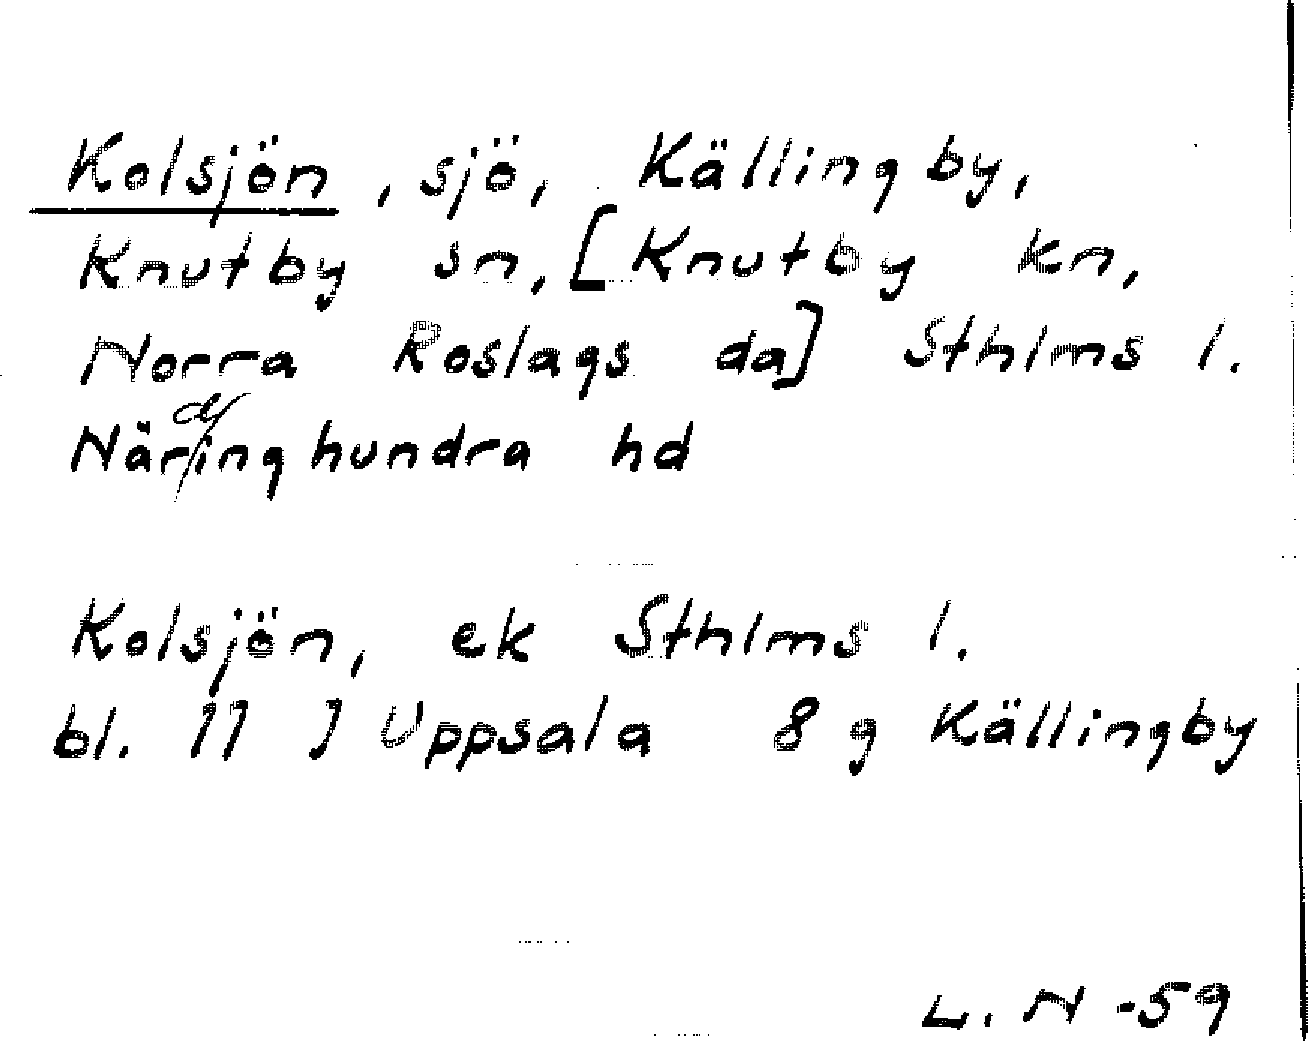 Kolsjön, sjö, Källingby,
Knutby sn, [Knutby kn,
Norra Roslags da] Sthlms l.
Närdinghundra hd
Kolsjön, ek Sthlms l.
bl. 11 J Uppsala 8 g Källingby
L. N -59